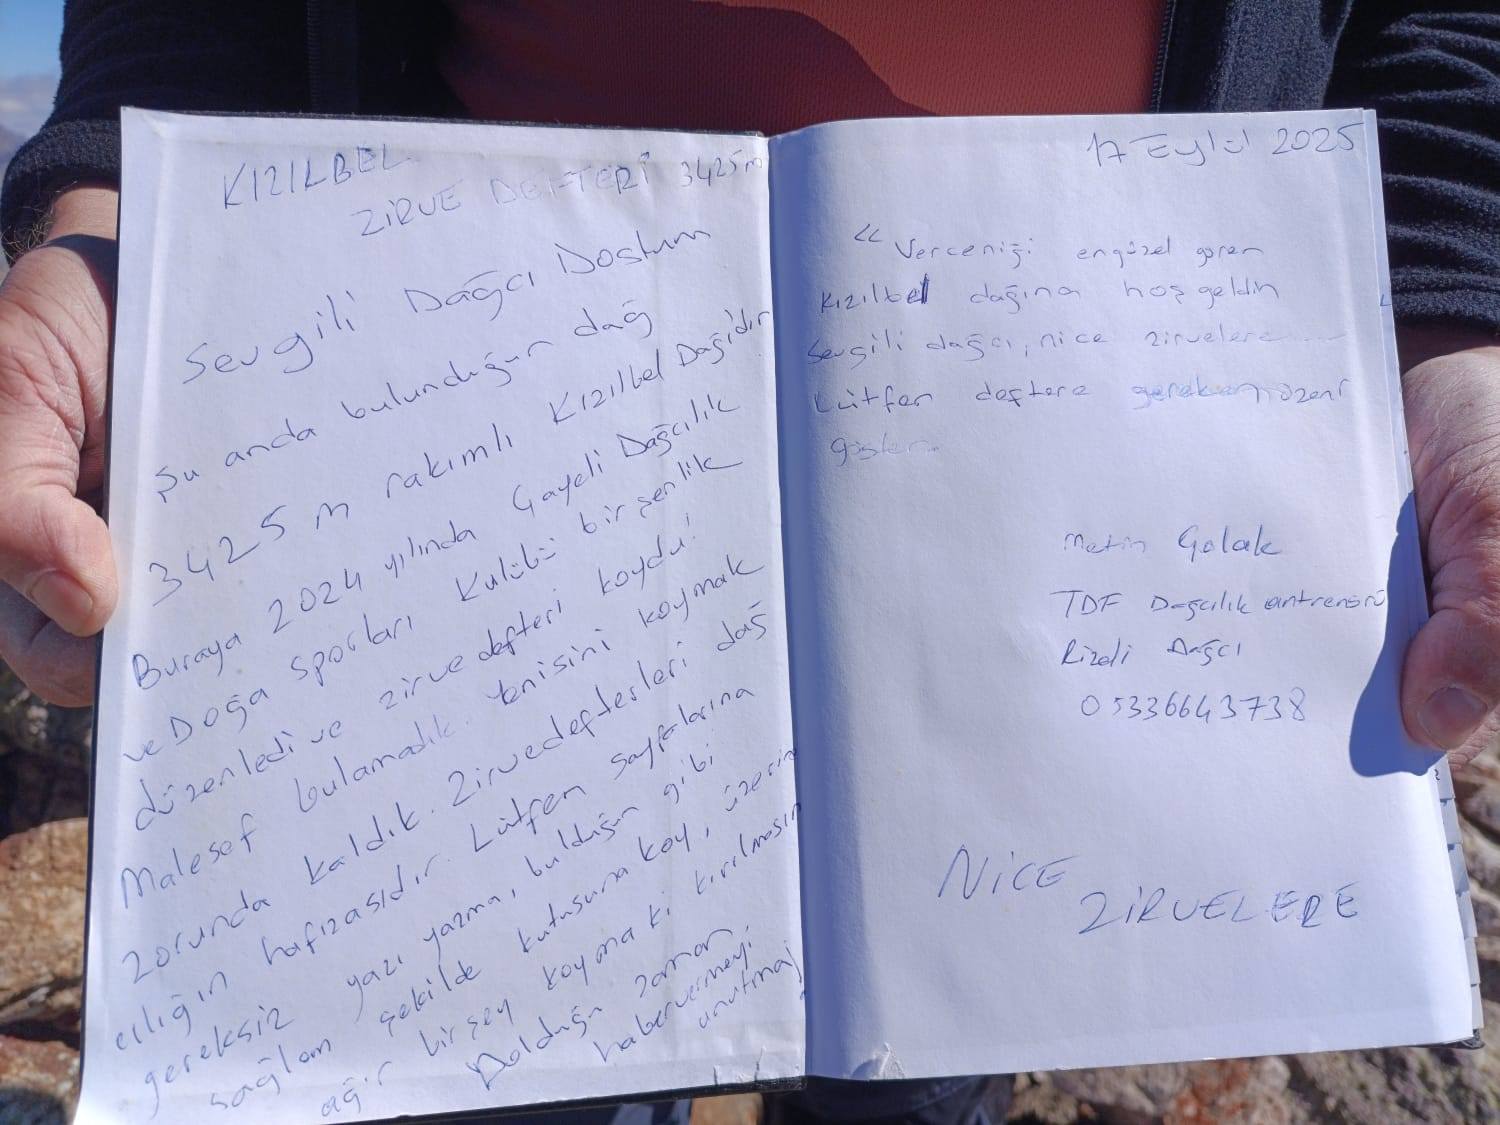 KIZILBEL
ZİRVE DEFTERİ 3425m
Sevgili Dağcı Dostum
Şu anda bulunduğun dağ
3425 m rakımlı Kızılbel Dağıdır
Buraya 2024 yılında Gayeli Dağcılık
ve Doğa sporları Kulübü bir şenlik
düzenledi ve zirve defteri koydu!
Malesef bulamadık. Yenisini koymak
zorunda kaldık. Zirve defterleri dağ
cılığın hafızasıdır. Lütfen sayfalarına
gereksiz yazı yazma, bulduğun gibi
sağlam şekilde kutusuna koy, üzerine
ağır bir şey koyma ki kırılmasın
Dolduğu zaman
haber vermeyi
unutma
17 Eylül 2025
" Verceniği en güzel gören
Kızılbel dağına hoş geldin
Sevgili dağcı, nice zirvelere ....
Lütfen deftere gereken özeni
göster..
Metin Golak
TDF Dağcılık antrenörü
Rizeli Dağcı
05336643738
NİCE
ZİRVELERE